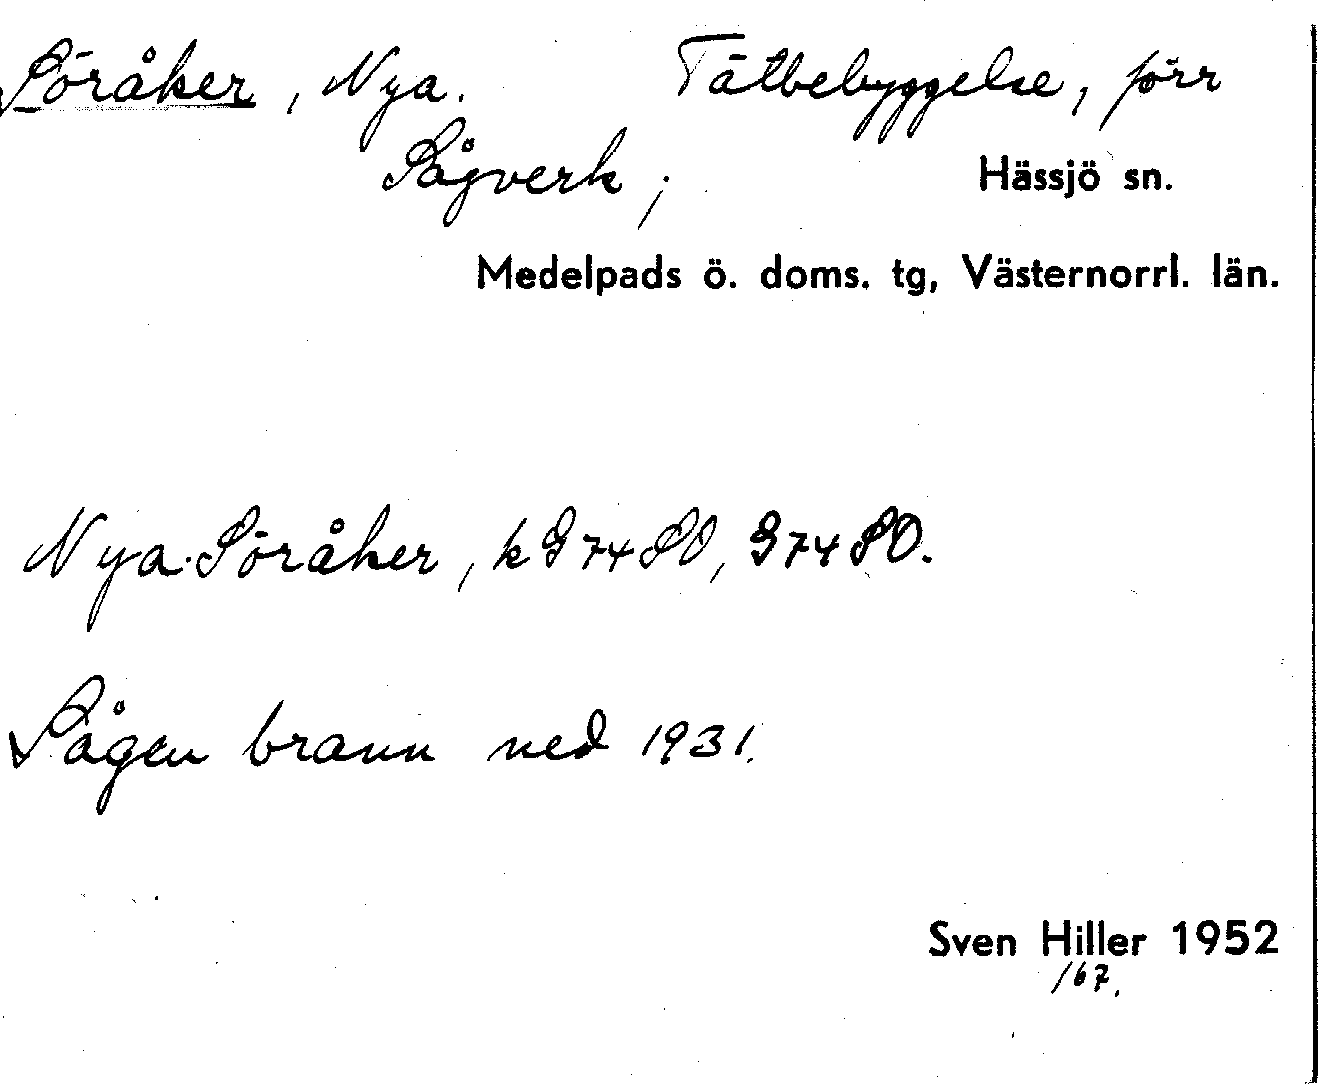 Söråker, Nya. Tätbebyggelse, förr
Sågverk; Hässjö sn.
Medelpads ö. doms. tg, Västernorrl. län.
Nya Söråker, k G 74 SO, G 74 SO.
Sågen brann ned 1931.
Sven Hiller 1952
/67.